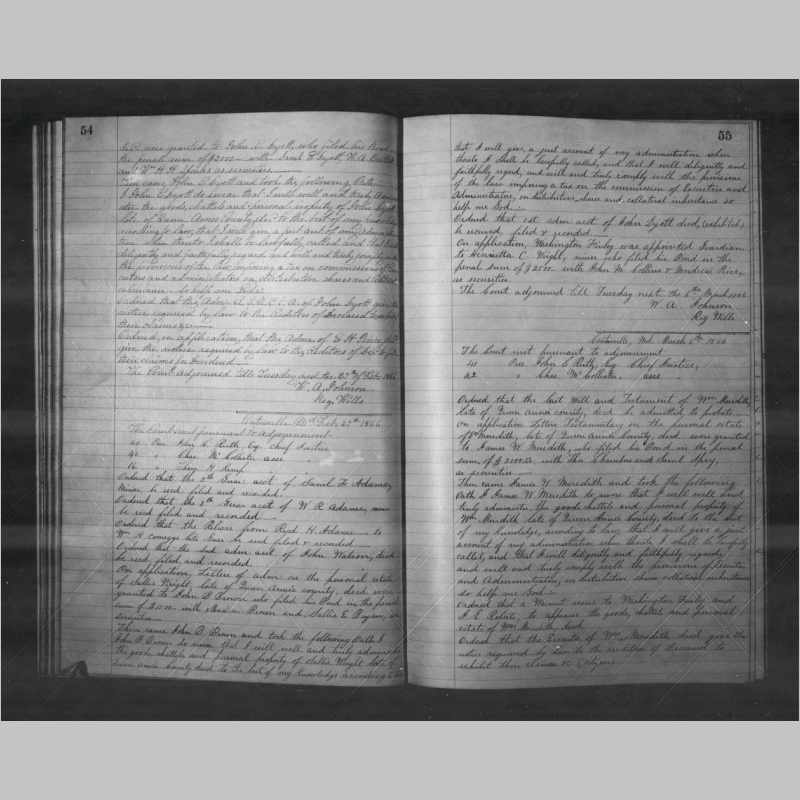 54
were granted to John C. Lyott, who filed his Bond
the penal sum of $2000 — with
and Wm H. H. Sparks as sureties
Then came John C Lyott and took the following Oath
I John C Lyott do swear that I will well and truly
the goods chattels and personal property of John Lyott
late of Queen Annes County, dec to the best of my
according to law, that I will give a just acct of my
when thereto I shall be lawfully called and that I will
diligently and faithfully regard, and well and truly comply with
the provisions of the law imposing a tax on commissions of
and administrators on distributive shares and
So help me God.
Ordered that the Adm of John Lyott give
notice required by law to the creditors of Deceased to
their claims
Ordered, on application, that the Admr of
give the notice required by law to the creditors of Dec to
their claims for Dividend
The Court adjourned till Tuesday next the 27th of Feb 1866
W. A. Johnson
Reg Wills
Centreville Md Feb. 27th 1866
The Court met pursuant to adjournment
Pres John C. Ruth Esq Chief Justice
42 " Chas McCollister asse
Ordered that the acct of Saml Adams,
Minor be recd filed and recorded.
Ordered that the 2nd acct of W R Adams,
be recd filed and recorded
Ordered that the Release from Rich H. Adams to
Wm be recd filed & recorded
Ordered that the 2nd adm acct of John Watson, decd
be recd filed and recorded
On application, Letters of adm on the personal estate
of Sallie Wright, late of Queen Annes county, decd were
granted to John B Brown who filed his Bond in the penal
sum of with Brown and Sallie E Bryan, as
sureties
Then came John B. Brown and took the following Oath I
John B Brown do swear that I will well and truly administer
the goods chattels and personal property of Sallie Wright late of
Queen Annes County decd to the best of my knowledge according to
55
that I will give, a just account of my administration when
thereto I shall be lawfully called, and that I will diligently and
faithfully regard, and well and truly comply with the provisions
of the law imposing a tax on the commission of Executors and
Administrators, on distributive, share and collateral inheritance so
help me God.
Ordered that 1st adm acct of John Lyott decd, (exhibited,)
be recorded filed & recorded.
On application, Washington Finley was appointed Guardian
to Henrietta C. Wright, minor who filed his Bond in the
penal sum of $2500. with John M. Collins &
as sureties
The Court adjourned till Tuesday next the 6th March 1866
W. A. Johnson
Reg Wills
Centreville, Md. March 6th 1866
The Court met pursuant to adjournment
41 Pres John C Ruth, Esq Chief Justice,
42 " Chas McCollister, asse
Ordered that the last Will and Testament of Wm Meredith
late of Queen Anns county, decd be admitted to probate
on application Letters Testamentary on the personal estate
of Wm Meredith, late of Queen Anns County, decd were granted
to James W. Meredith, who filed his Bond in the penal
sum of with Chambers and Saml Spry,
as sureties
Then came James W Meredith and took the following
Oath I James W Meredith do swear that I will well and
truly administer the goods chattels and personal property of
Wm Meredith late of Queen Annes County, decd to the best
of my knowledge, according to law that I will give a just
account of my administration when thereto I shall be lawfully
called, and that I will diligently and faithfully regard,
and well and truly comply with the provisions of Executors
and Administrators, on distributive shares collateral inheritance
so help me God
Ordered that a Warrant issue to Washington Finley and
Roberts, to appraise the goods, chattels and personal
estate of Wm Meredith decd
Ordered that the Executor of Wm Meredith decd give the
notice required by law to the creditors of Deceased to
exhibit their claims &c